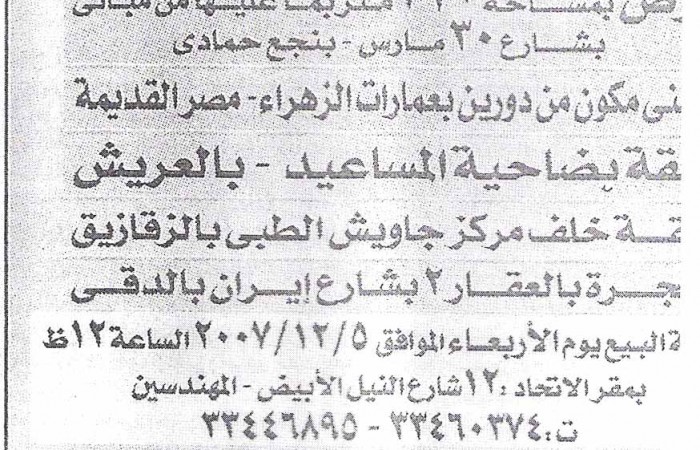 رض بمساحة ٣٢٠ متر بما عليها من مبانى
بشارع ٣٠ مارس - بنجع حمادى
نى مكون من دورين بعمارات الزهراء - مصر القديمة
قة بضاحية المساعيد - بالعريش
قة خلف مركز جاويش الطبى بالزقازيق
جرة بالعقار ٢ بشارع إيران بالدقى
ة البيع يوم الأربعاء الموافق ٢٠٠٧/١٢/٥ الساعة ١٢ ظ
بمقر الاتحاد : ١٢ شارع النيل الأبيض - المهندسين
ت: ٣٣٤٦٠٣٧٤ - ٣٣٤٤٦٨٩٥